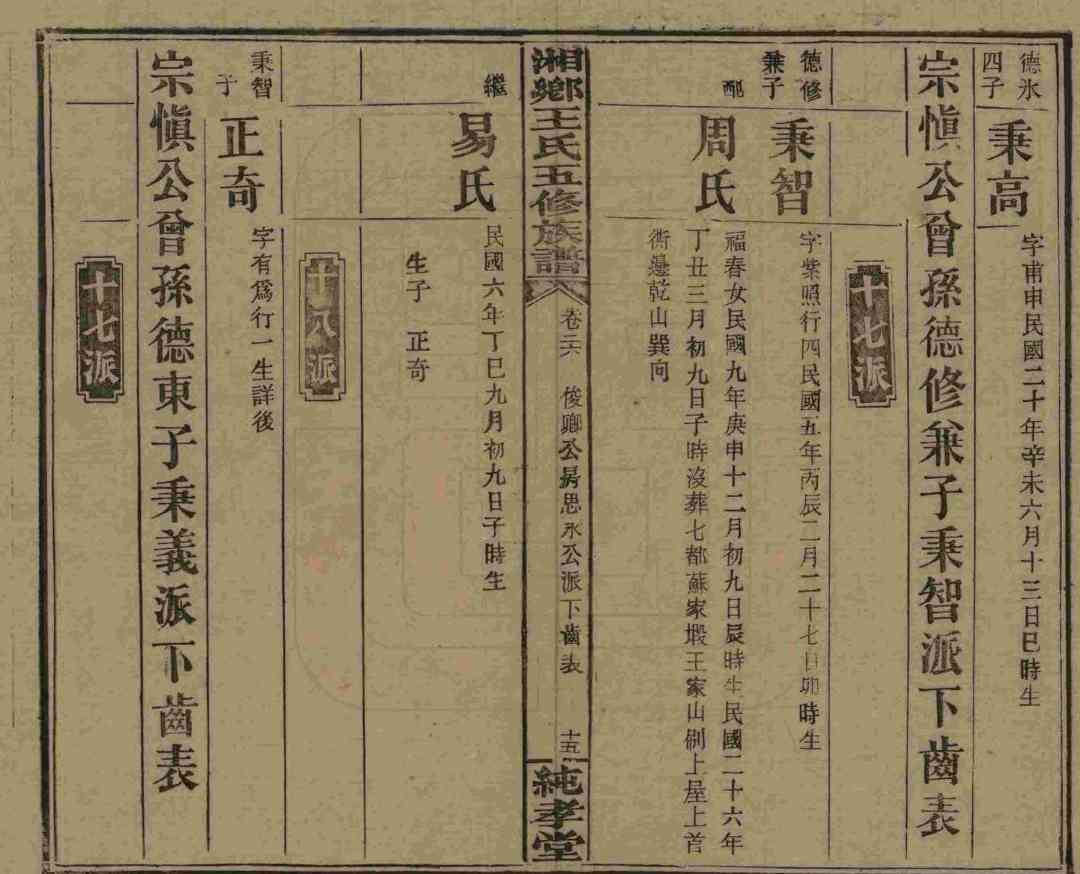 德氷
四子
秉高
字甫申民國二十年辛未六月十三日巳時生
宗愼公曾孫德修兼子秉智派下齒表
十七派
德修
兼子
秉智
字紫照行四民國五年丙辰二月二十七日卯時生
配
周氏
福春女民國九年庚申十二月初九日辰時生民國二十六年
丁丑三月初九日子時沒葬七都蘇家塅王家山側上屋上首
衖邊乾山巽向
湘鄉王氏五修族譜
卷二六
俊卿公房思永公派下齒表
十五
純孝堂
繼
易氏
民國六年丁巳九月初九日子時生
生子 正奇
十八派
秉智
子
正奇
字有爲行一生詳後
宗愼公曾孫德東子秉義派下齒表
十七派